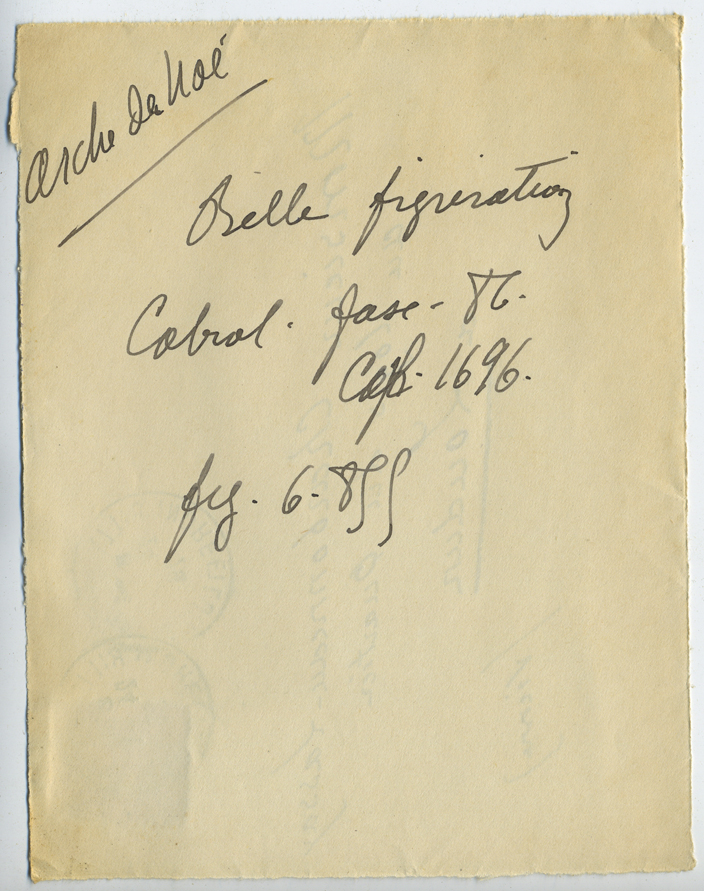 Arche de Noé
Belle figuration
Cabrol. fasc. 86.
Col. 1696.
fig. 6.855